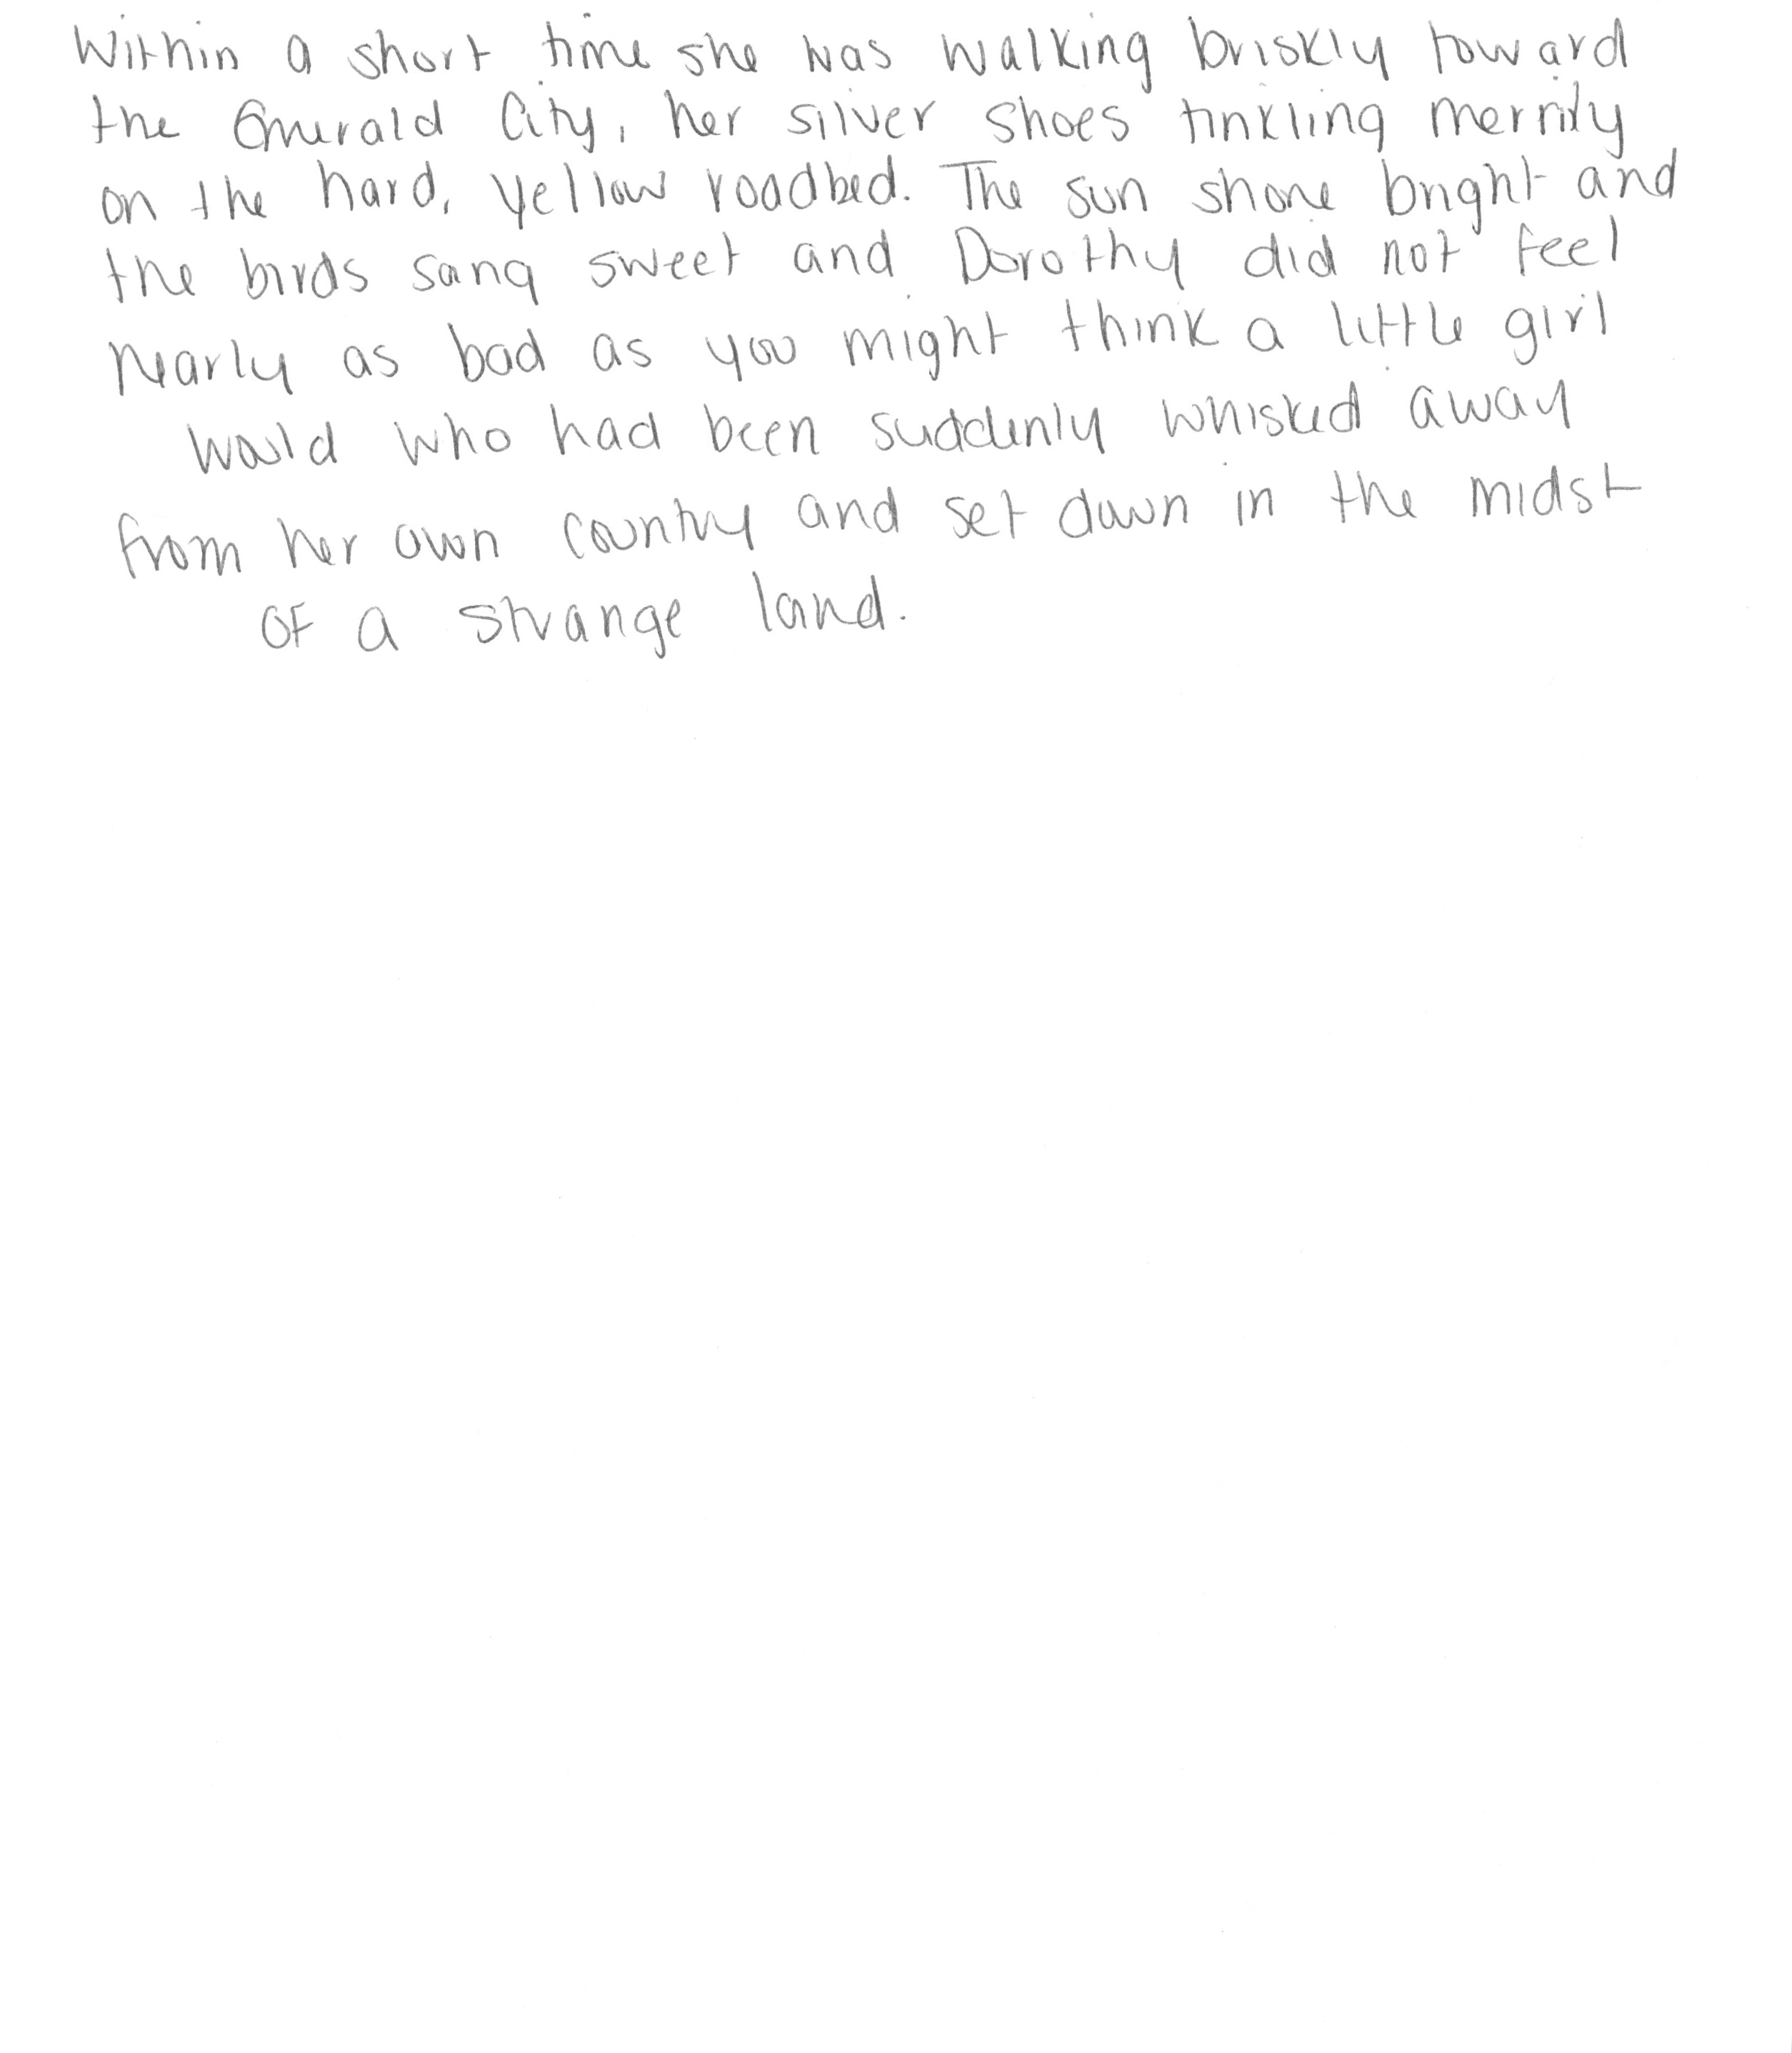 Within a short time she was walking briskly toward
the Emerald City, her silver shoes tinkling merrily
on the hard, yellow roadbed. The sun shone bright and
the birds sang sweet and Dorothy did not feel
nearly as bad as you might think a little girl
would who had been suddenly whisked away
from her own country and set down in the midst
of a strange land.